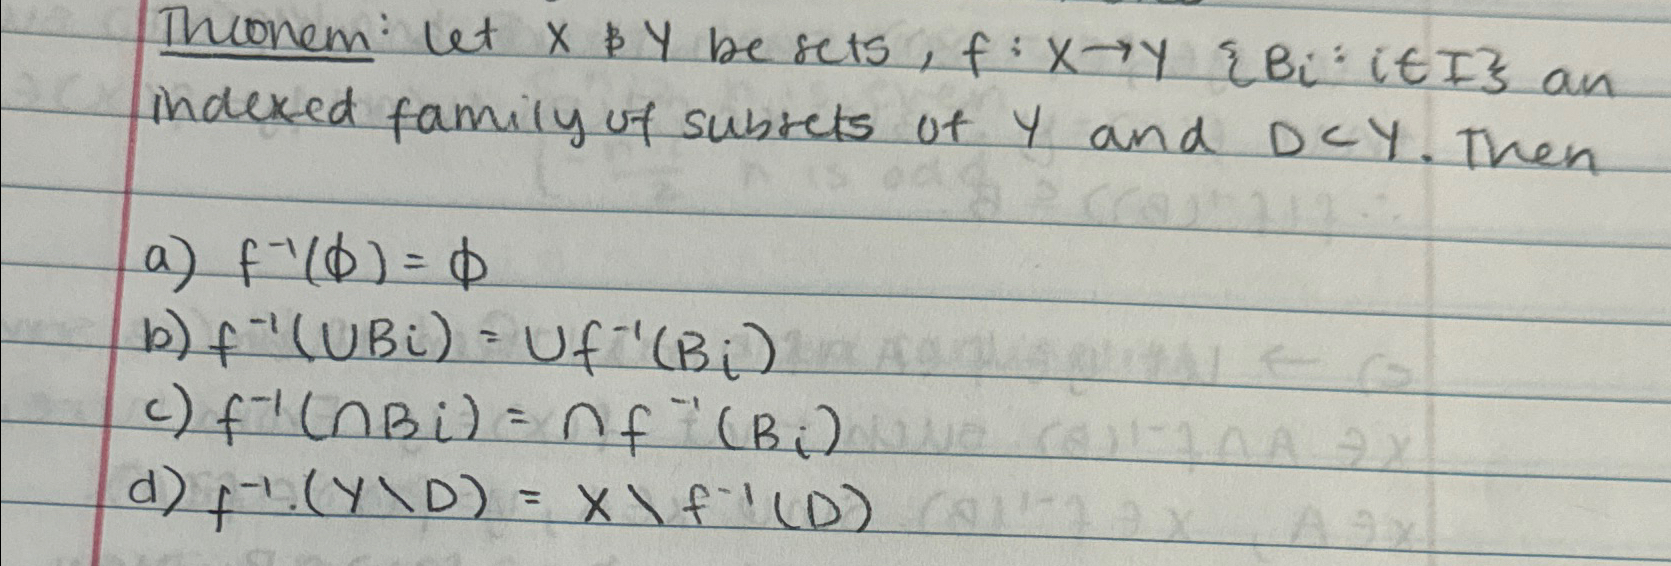 Theorem: Let X & Y be sets, f: X→Y {Bi: i∈I} an
indexed family of subsets of Y and D⊂Y. Then
a) f⁻¹(ϕ) = ϕ
b) f⁻¹(∪Bi) = ∪f⁻¹(Bi)
c) f⁻¹(∩Bi) = ∩f⁻¹(Bi)
d) f⁻¹(Y\D) = X\f⁻¹(D)